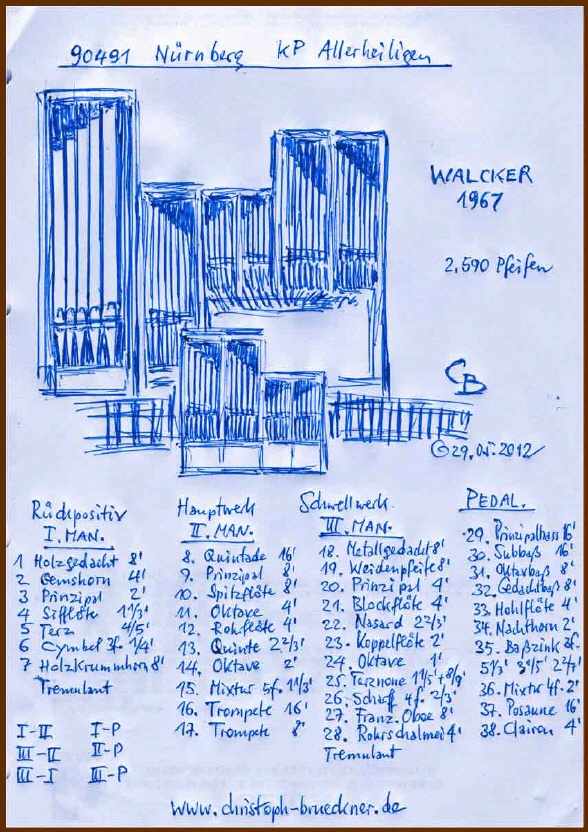 90491 Nürnberg KP Allerheiligen
WALCKER
1967
2.590 Pfeifen
CB
©29.05.2012
Rückpositiv
I. MAN.
1 Holzgedackt 8'
2 Gemshorn 4'
3 Prinzipal 2'
4 Sifflöte 1 1/3'
5 Terz 4/5'
6 Cymbel 3f. 1/4'
7 Holzkrummhorn 8'
Tremulant
I-II I-P
III-II II-P
III-I III-P
Hauptwerk
II. MAN.
8. Quintade 16'
9. Prinzipal 8'
10. Spitzflöte 8'
11. Oktave 4'
12. Rohrflöte 4'
13. Quinte 2 2/3'
14. Oktave 2'
15. Mixtur 5f. 1 1/3'
16. Trompete 16'
17. Trompete 8'
Schwellwerk
III. MAN.
18. Metallgedackt 8'
19. Weidenpfeife 8'
20. Prinzipal 4'
21. Blockflöte 4'
22. Nasard 2 2/3'
23. Koppelflöte 2'
24. Oktave 1'
25. Terznone 1 3/5' + 8/9'
26. Scharff 4f. 2/3'
27. Franz. Oboe 8'
28. Rohrschalmei 4'
Tremulant
PEDAL.
29. Prinzipalbass 16'
30. Subbaß 16'
31. Oktavbaß 8'
32. Gedacktbaß 8'
33 Hohlflöte 4'
34. Nachthorn 2'
35. Baßzink 3f.
5 1/3' 3 1/5' 2 2/7'
36. Mixtur 4f. 2'
37. Posaune 16'
38. Clairon 4'
www.christoph-brueckner.de